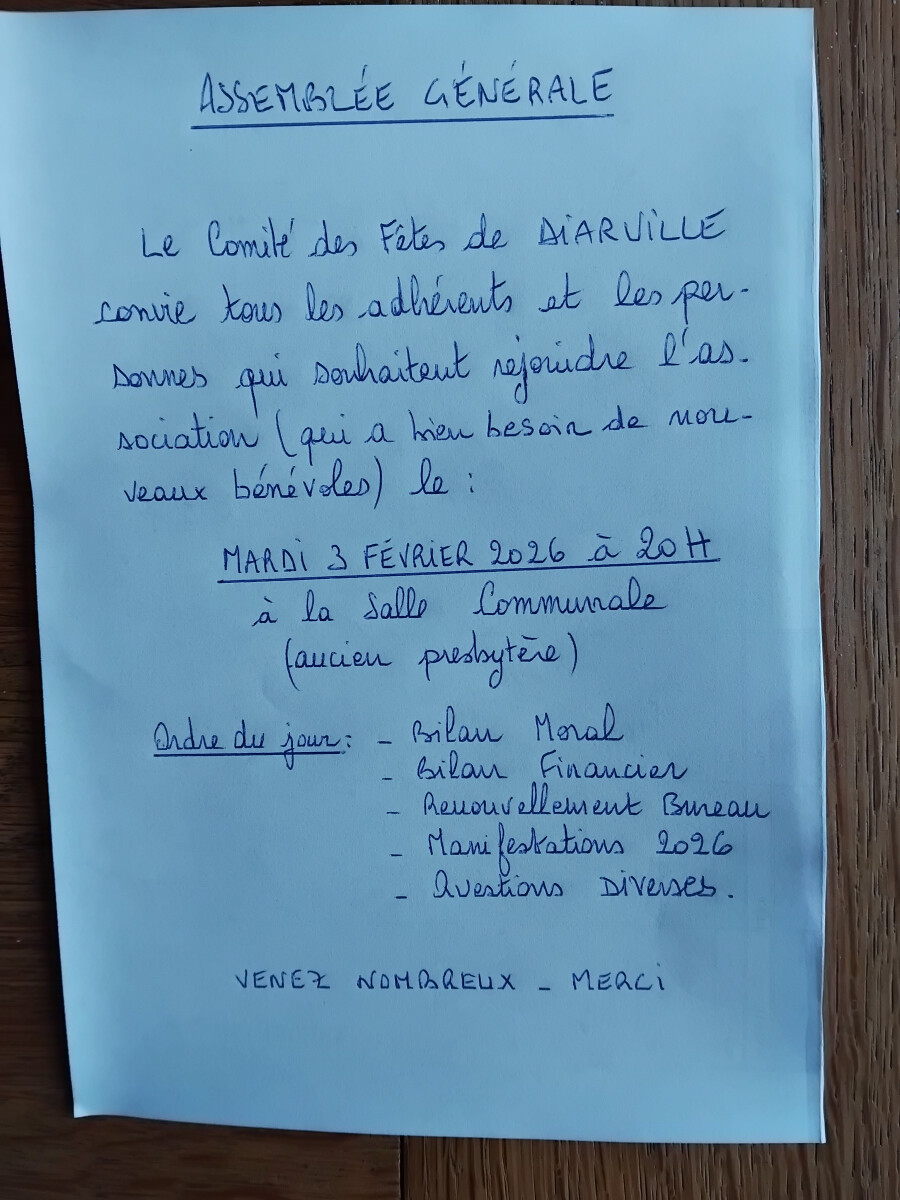 ASSEMBLÉE GÉNÉRALE
Le Comité des Fêtes de DIARVILLE
convie tous les adhérents et les per-
sonnes qui souhaitent rejoindre l'as-
sociation (qui a bien besoin de nou-
veaux bénévoles) le :
MARDI 3 FÉVRIER 2026 à 20H
à la Salle Communale
(ancien presbytère)
Ordre du jour : - Bilan Moral
- Bilan Financier
- Renouvellement Bureau
- Manifestations 2026
- Questions Diverses.
VENEZ NOMBREUX - MERCI